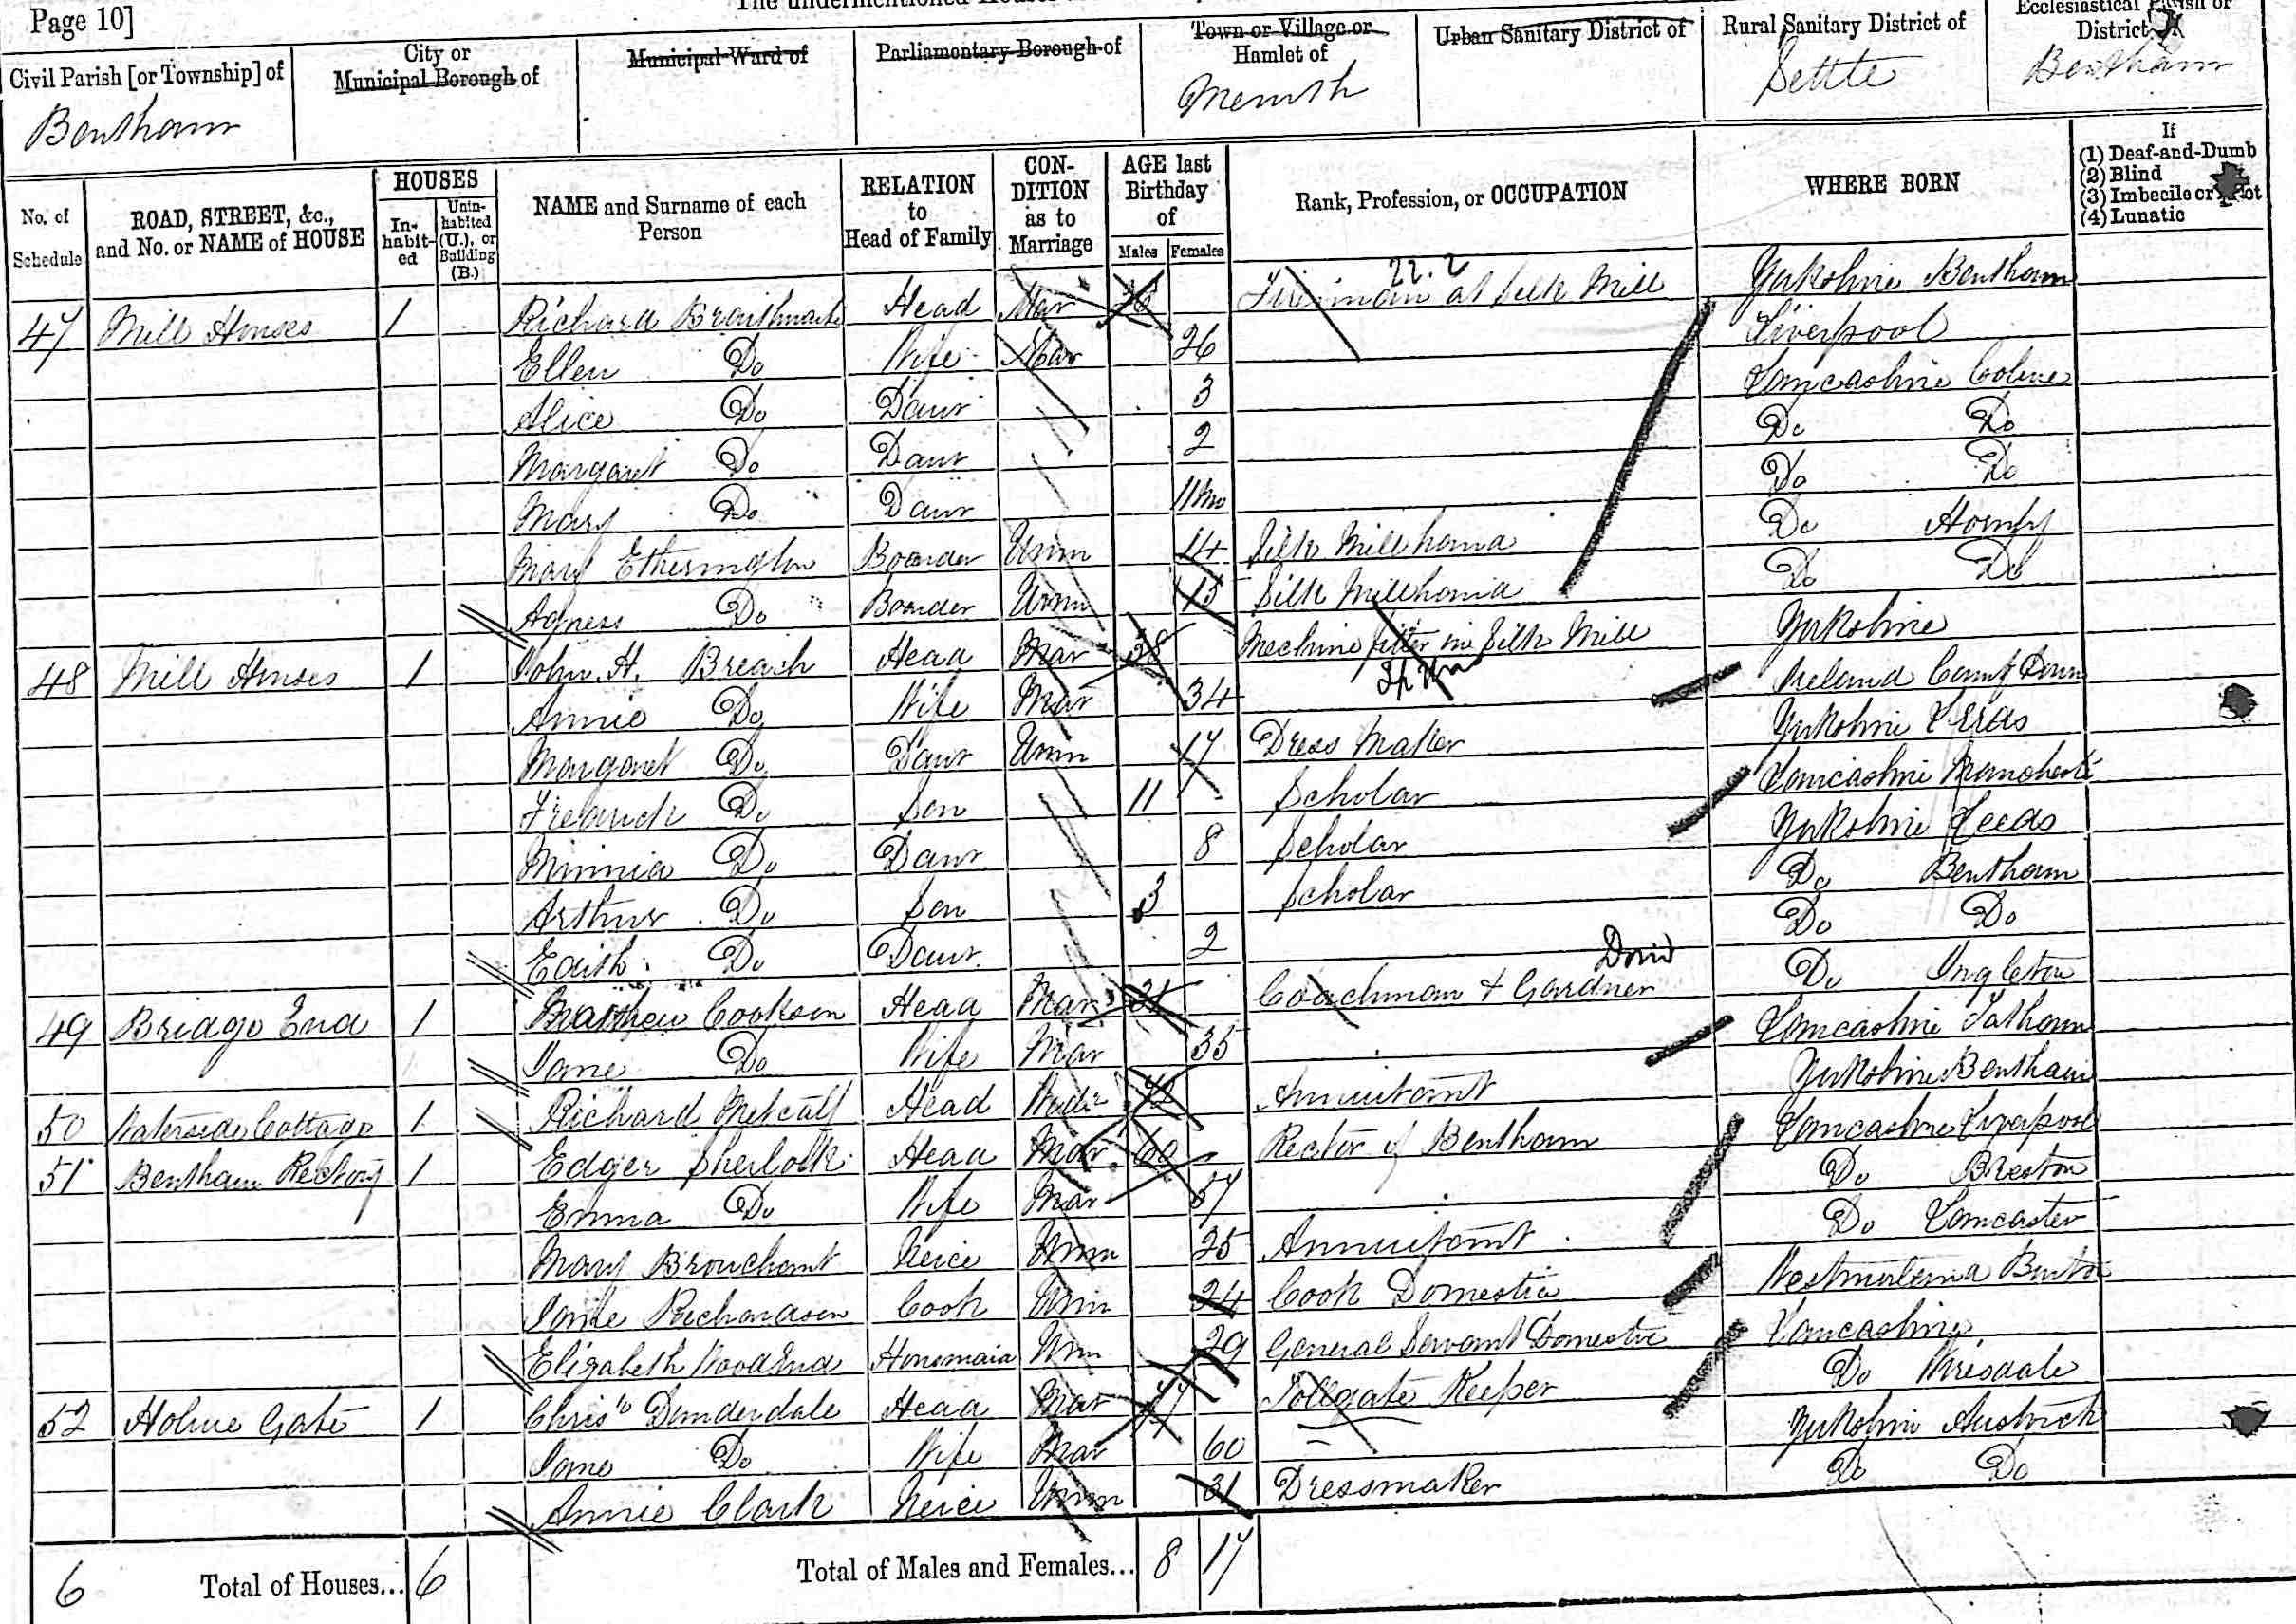 Page 10]
Civil Parish [or Township] of
Bentham
City or
Municipal Borough of
Municipal Ward of
Parliamentary Borough of
Town or Village or
Hamlet of
Urban Sanitary District of
Rural Sanitary District of
Settle
Ecclesiastical Parish or
District of
Bentham
No. of Schedule
ROAD, STREET, &c., and No. or NAME of HOUSE
HOUSES
In-habit-ed
Unin-habited (U.), or Building (B.)
NAME and Surname of each Person
RELATION to Head of Family
CON-DITION as to Marriage
AGE last Birthday of
Males Females
Rank, Profession, or OCCUPATION
WHERE BORN
If
(1) Deaf-and-Dumb
(2) Blind
(3) Imbecile or Idiot
(4) Lunatic
22.2
47 Mill Houses 1 Richard Braithwaite Head Mar Fireman at Silk Mill Yorkshire Bentham
Ellen Do Wife Mar 26 Liverpool
Alice Do Daur 3 Lancashire Colne
Margaret Do Daur 2 Do Do
Mary Do Daur 11 Mo Do Do
Mary Etherington Boarder Unm 14 Silk Mill hand Do Hornby
Agness Do Boarder Unm 15 Silk Mill hand Do Do
48 Mill Houses 1 John H. Breach Head Mar 38 Mechine fitter in Silk Mill Yorkshire
Annie Do Wife Mar 34 Ireland Canty Down
Margaret Do Daur Unm 17 Dress Maker Yorkshire Leeds
Frederick Do Son 11 Scholar Lancashire Manchester
Minnia Do Daur 8 Scholar Yorkshire Leeds
Arthur Do Son 3 Scholar Do Bentham
Edith Do Daur 2 Do Do
Domd
49 Bridge End 1 Matthew Cookson Head Mar 31 Coachman & Gardner Do Ingleton
Jane Do Wife Mar 35 Lancashire Tatham
50 Waterside Cottage 1 Richard Metcalf Head Widr Annuitant Yorkshire Bentham
51 Bentham Rectory 1 Edger Sherlock Head Mar 60 Rector of Bentham Lancashire Liverpool
Emma Do Wife Mar 57 Do Preston
Mary Brouchant Neice Unm 25 Annuitant Do Lancaster
Jane Richardson Cook Unm 24 Cook Domestic Westmorland Burton
Elizabeth Woodend Housmaid Unm 29 General Servant Domestic Lancashire
52 Holme Gate 1 Chrisr Dunderdale Head Mar 77 Tollgate Keeper Do Wresdale
Jane Do Wife Mar 60 Yorkshire Austwick
Annie Clark Neice Unm 31 Dressmaker Do Do
6 Total of Houses... 6 Total of Males and Females... 8 17